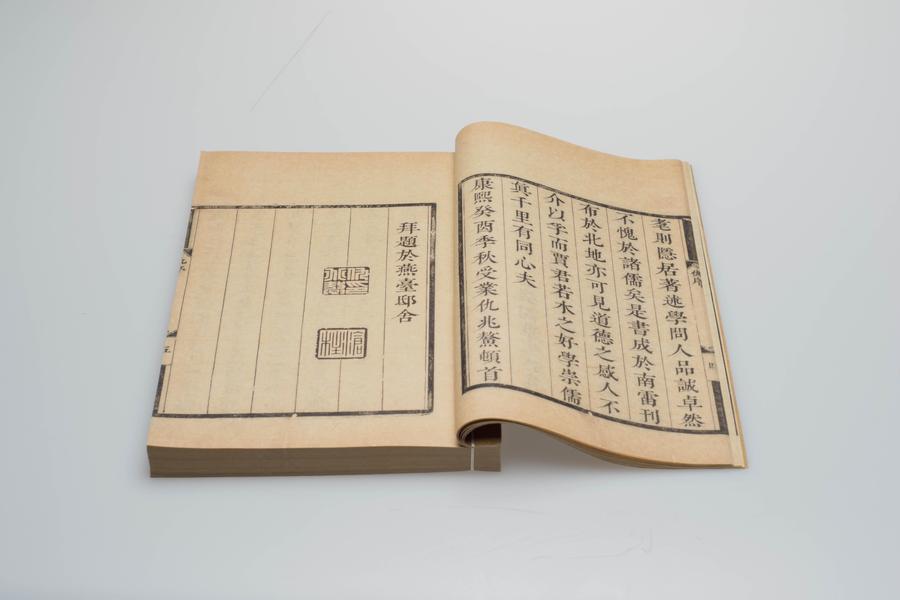 老則隱居著述學問人品誠卓然
不愧於諸儒矣是書成於南雷刊
布於北地亦可見道德之感人不
介以孚而賈君若木之好學崇儒
真千里有同心夫
康熙癸酉季秋受業仇兆鰲頓首
拜題於燕臺邸舍
滄柱